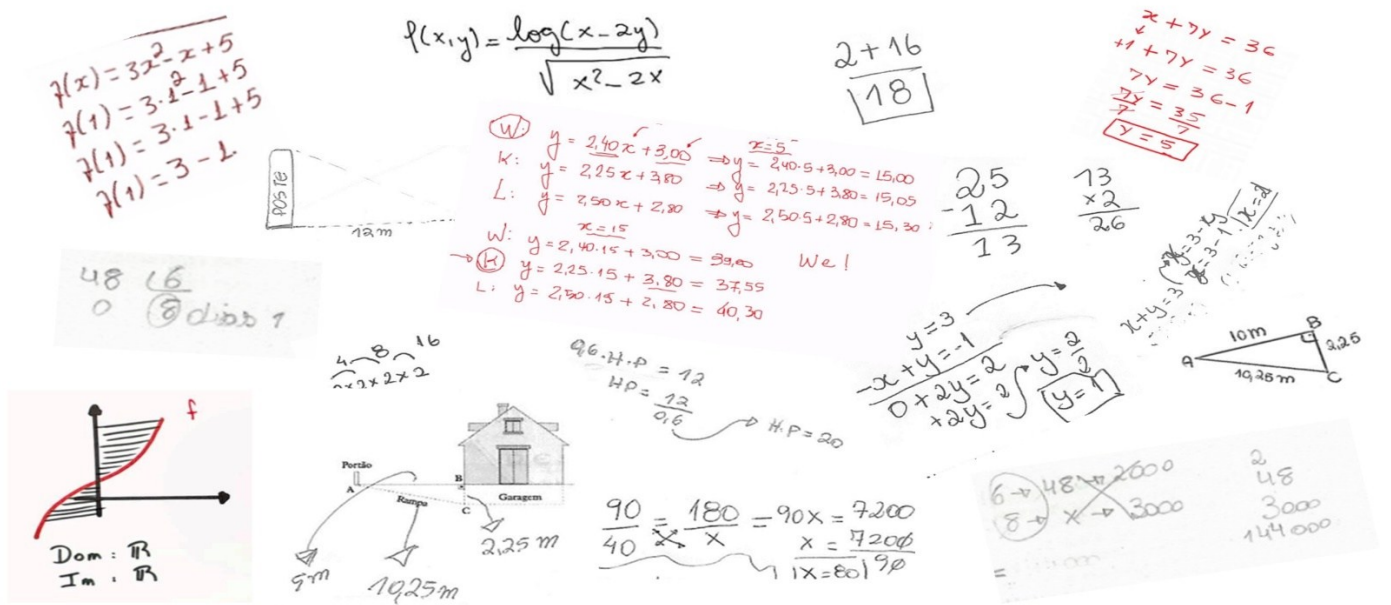 f(x) = 3x² - x + 5
f(1) = 3·1² - 1 + 5
f(1) = 3·1 - 1 + 5
f(1) = 3 - 1
f(x,y) = log(x-2y)
√x²-2x
2+16
18
x + 7y = 36
+1 + 7y = 36
7y = 36-1
7y = 35
7 7
y = 5
POSTE
12m
W: y = 2,40x + 3,00 ⇒ y = 2,40·5+3,00 = 15,00
x=5
K: y = 2,25x + 3,80 ⇒ y = 2,25·5+3,80 = 15,05
L: y = 2,50x + 2,80 ⇒ y = 2,50·5+2,80 = 15,30
x=15
W: y = 2,40·15 + 3,00 = 39,00 We!
→ K y = 2,25·15 + 3,80 = 37,55
L: y = 2,50·15 + 2,80 = 40,30
25
-12
13
13
×2
26
x+y=3
x=3-y
x=3-1
x=2
48 6
0 8 dias
4 8 16
2×2×2×2
0,6·H.P = 12
HP = 12
0,6
H.P = 20
y = 3
-x + y = -1
0 + 2y = 2
+2y = 2
y = 2
2
y = 1
10m
B
2,25
A
10,25m
C
f
Dom: ℝ
Im: ℝ
Portão
A
B
Rampa
C
Garagem
2,25 m
10,25m
90 = 180 = 90x = 7200
40 x
x = 7200
90
x=80
6 → 48 2000
8 → x → 3000
2
48
3000
144000
=